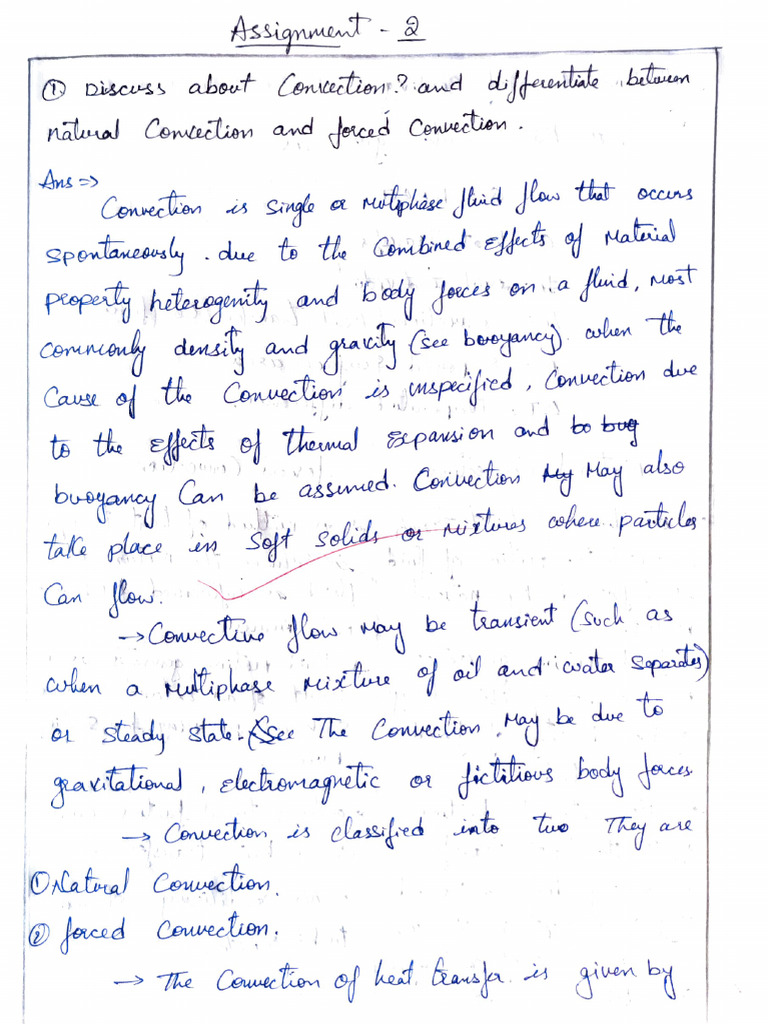 Assignment - 2
① Discuss about Convection? and differentiate between
natural Convection and forced Convection.
Ans =>
Convection is single or multiphase fluid flow that occurs
spontaneously. due to the Combined effects of Material
property heterogenity and body forces on a fluid, most
commonly density and gravity (see buoyancy). when the
Cause of the Convection is unspecified, Convection due
to the effects of thermal Expansion and
buoyancy Can be assumed. Convection May also
take place in soft solids or mixtures where particles
Can flow.
→ Convective flow may be transient (such as
when a multiphase mixture of oil and water separates)
or steady state. The Convection may be due to
gravitational, electromagnetic or fictitious body forces.
→ Convection is classified into two They are
① Natural Convection.
② forced Convection.
→ The Convection of heat transfer is given by